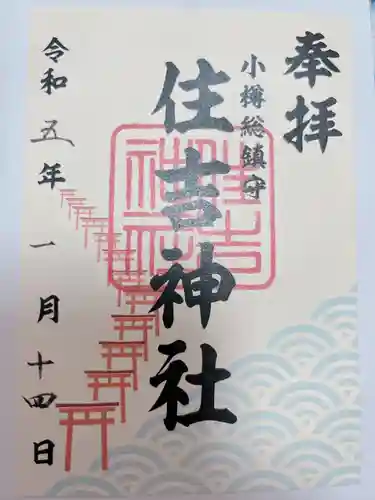 奉拝
小樽総鎮守
住吉神社
令和五年一月十四日
住吉
神社